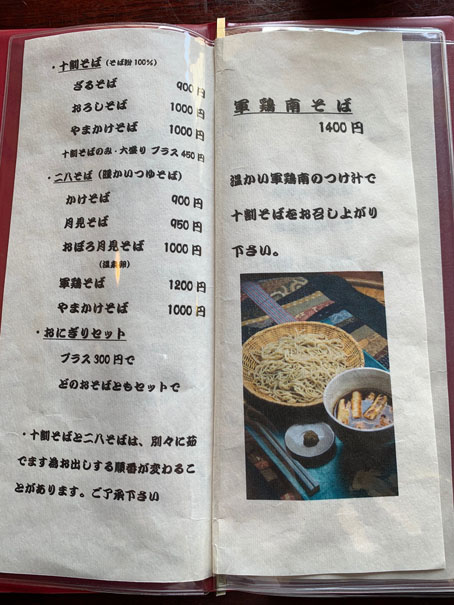 ・十割そば（そば粉100%）
ざるそば 900円
おろしそば 1000円
やまかけそば 1000円
十割そばのみ・大盛り プラス450円
・二八そば（暖かいつゆそば）
かけそば 900円
月見そば 950円
おぼろ月見そば 1000円
（温泉卵）
軍鶏そば 1200円
やまかけそば 1000円
・おにぎりセット
プラス300円で
どのおそばともセットで
・十割そばと二八そばは、別々に茹
でます為お出しする順番が変わるこ
とがあります。ご了承下さい
軍鶏南そば
1400円
温かい軍鶏南のつけ汁で
十割そばをお召し上がり
下さい。